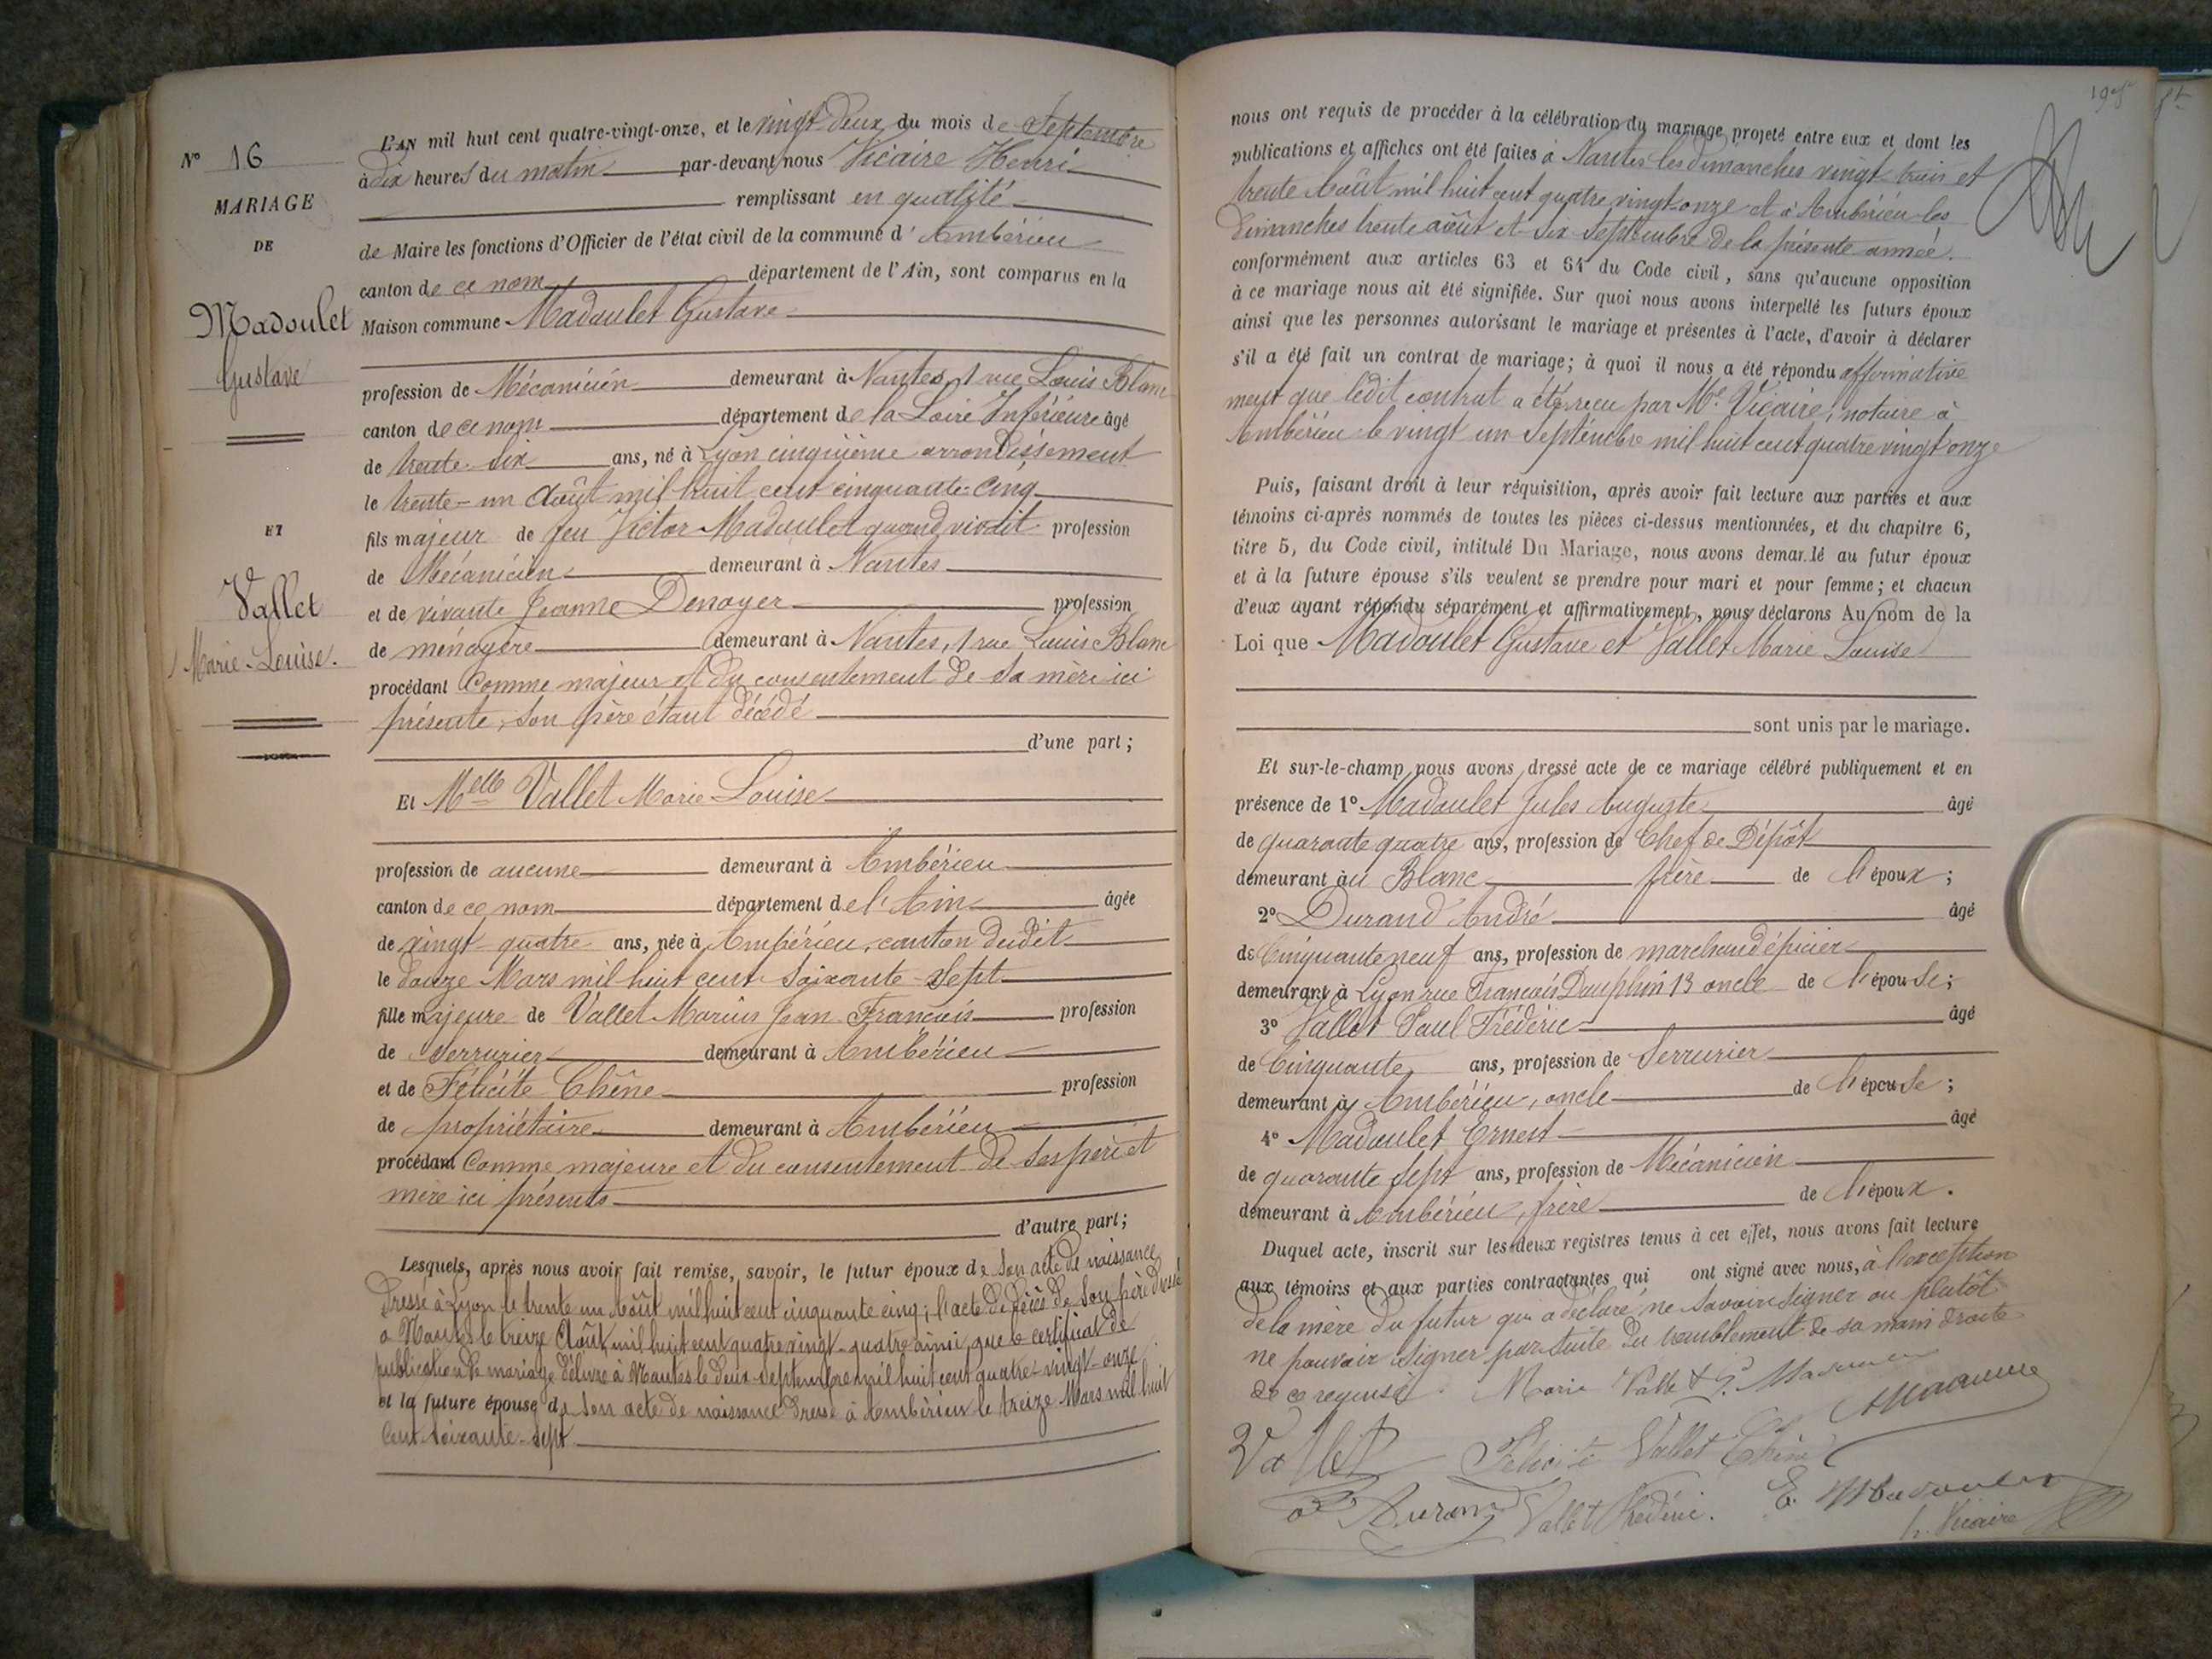 N° 16
MARIAGE
DE
Madoulet
Gustave
ET
Vallet
Marie-Louise.
L'AN mil huit cent quatre-vingt-onze, et le vingt-deux du mois de Septembre
à dix heures du matin par-devant nous Vicaire Henri
remplissant en qualité
de Maire les fonctions d'Officier de l'état civil de la commune d'Ambérieu
canton de ce nom département de l'Ain, sont comparus en la
Maison commune Madoulet Gustave
profession de Mécanicien demeurant à Nantes, 1 rue Louis Blanc
canton de ce nom département de la Loire Inférieure âgé
de trente-six ans, né à Lyon cinquième arrondissement
le trente-un Août mil huit cent cinquante-cinq
fils majeur de feu Victor Madoulet quand vivait profession
de Mécanicien demeurant à Nantes
et de vivante Jeanne Denoyer profession
de ménagère demeurant à Nantes, 1 rue Louis Blanc
procédant comme majeur et du consentement de sa mère ici
présente, son père étant décédé
d'une part;
Et Melle Vallet Marie-Louise
profession de aucune demeurant à Ambérieu
canton de ce nom département de l'Ain âgée
de vingt-quatre ans, née à Ambérieu, canton dudit
le douze Mars mil huit cent soixante-sept
fille majeure de Vallet Marius Jean François profession
de serrurier demeurant à Ambérieu
et de Félicité Chêne profession
de propriétaire demeurant à Ambérieu
procédant comme majeure et du consentement de ses père et
mère ici présents
d'autre part;
Lesquels, après nous avoir fait remise, savoir, le futur époux de son acte de naissance
dressé à Lyon le trente un Août mil huit cent cinquante cinq; l'acte de décès de son père dressé
à Nantes le treize Août mil huit cent quatre vingt-quatre ainsi que le certificat de
publication de mariage délivré à Nantes le deux septembre mil huit cent quatre-vingt-onze
et la future épouse de son acte de naissance dressé à Ambérieu le treize Mars mil huit
cent soixante-sept
nous ont requis de procéder à la célébration du mariage projeté entre eux et dont les
publications et affiches ont été faites à Nantes les dimanches vingt-trois et
trente Août mil huit cent quatre vingt-onze et à Ambérieu les
Dimanches trente août et six septembre de la présente année.
conformément aux articles 63 et 64 du Code civil, sans qu'aucune opposition
à ce mariage nous ait été signifiée. Sur quoi nous avons interpellé les futurs époux
ainsi que les personnes autorisant le mariage et présentes à l'acte, d'avoir à déclarer
s'il a été fait un contrat de mariage; à quoi il nous a été répondu affirmative
ment que ledit contrat a été reçu par Me Vicaire, notaire à
Ambérieu le vingt un septembre mil huit cent quatre vingt onze
Puis, faisant droit à leur réquisition, après avoir fait lecture aux parties et aux
témoins ci-après nommés de toutes les pièces ci-dessus mentionnées, et du chapitre 6,
titre 5, du Code civil, intitulé Du Mariage, nous avons demandé au futur époux
et à la future épouse s'ils veulent se prendre pour mari et pour femme; et chacun
d'eux ayant répondu séparément et affirmativement, nous déclarons Au nom de la
Loi que Madoulet Gustave et Vallet Marie Louise
sont unis par le mariage.
Et sur-le-champ nous avons dressé acte de ce mariage célébré publiquement et en
présence de 1° Madoulet Jules Auguste âgé
de quarante quatre ans, profession de Chef de Dépôt
demeurant au Blanc frère de l'époux;
2° Durand André âgé
de Cinquante neuf ans, profession de marchand épicier
demeurant à Lyon rue François Dauphin 13 oncle de l'épouse;
3° Vallet Paul Frédéric âgé
de Cinquante ans, profession de Serrurier
demeurant à Ambérieu, oncle de l'épouse;
4° Madoulet Ernest âgé
de quarante sept ans, profession de Mécanicien
demeurant à Ambérieu, frère de l'époux.
Duquel acte, inscrit sur les deux registres tenus à cet effet, nous avons fait lecture
aux témoins et aux parties contractantes qui ont signé avec nous, à l'exception
de la mère du futur qui a déclaré ne savoir signer ou plutôt
ne pouvoir signer par suite du tremblement de sa main droite
de ce requise. Marie Vallet G.
Vallet Félicité Vallet Chêne
Durand Vallet Frédéric. E. Madoulet
h. Vicaire